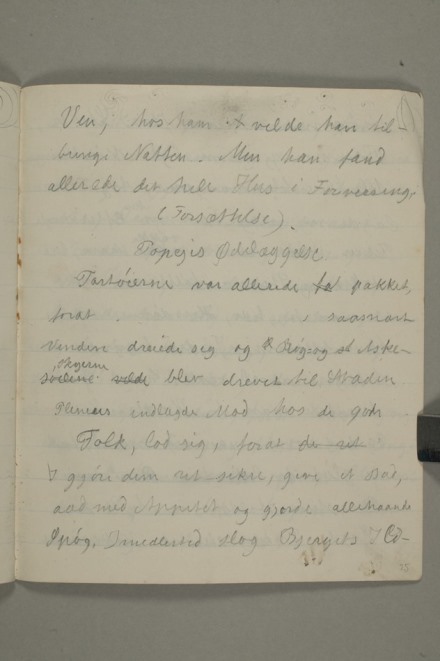 Ven, hos ham & vilde han til-
bringe Natten. Men han fand
allerede det hele Hus i Forvirring.
(Forsættelse).
Pompejis Ødelæggelse
Fartöierne var allerede pakket,
forat saasnart
Vinden dreiede sig og Røg og Aske-
skyerne
blev drevet til Staden
Plinius indlagde Mod hos de gode
Folk, lod sig, forat de ret
gjöre dem ret sikre, give et Bad,
aad med Appetit og gjorde allehaande
Spög. Imedlertid slog Bjergets Ild-